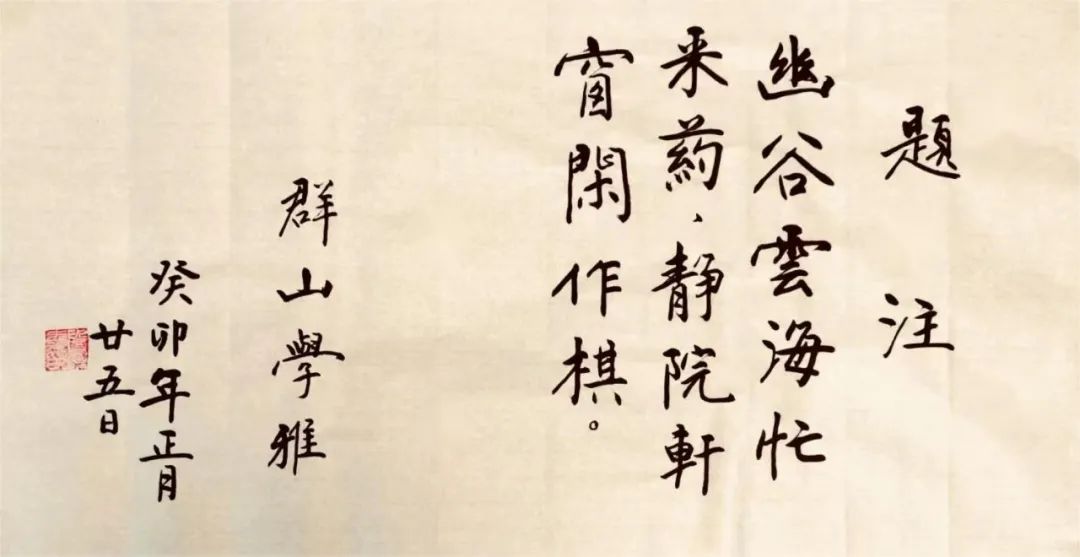 題注
幽谷雲海忙
采葯、靜院軒
窗閑作棋。
群山學雅
癸卯年正月
廿五日